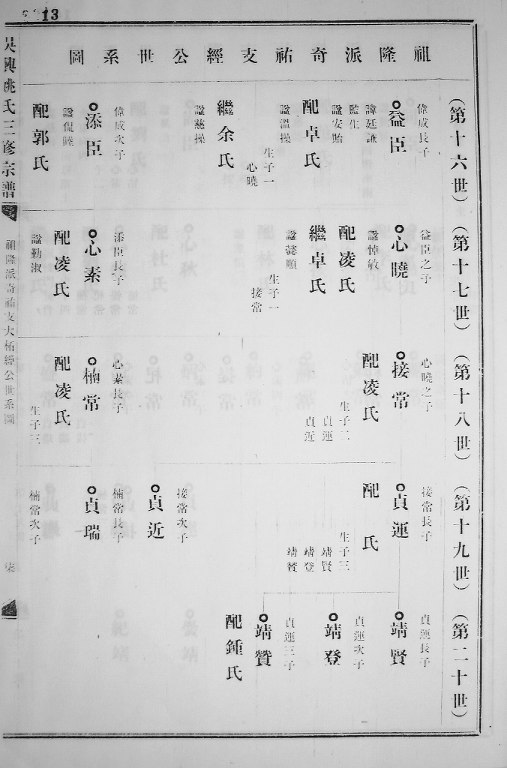 13
祖隆派奇祐支經公世系圖
(第十六世)
偉成長子
益臣
諱廷謙
監生
諡安貽
配卓氏
諡溫操
生子一
心曉
繼余氏
諡慈操
偉成次子
添臣
諡侃睦
配郭氏
(第十七世)
益臣之子
心曉
諡悼敏
配凌氏
繼卓氏
諡懿順
生子一
接常
添臣長子
心素
配凌氏
諡勤淑
(第十八世)
心曉之子
接常
配凌氏
生子二
貞運
貞近
心素長子
楠常
配凌氏
生子三
(第十九世)
接常長子
貞運
配 氏
生子三
靖賢
靖登
靖贊
接常次子
貞近
楠常長子
貞瑞
楠常次子
(第二十世)
貞運長子
靖賢
貞運次子
靖登
貞運三子
靖贊
配鍾氏
吳興姚氏三修宗譜
祖隆派奇祐支大楠經公世系圖
柒